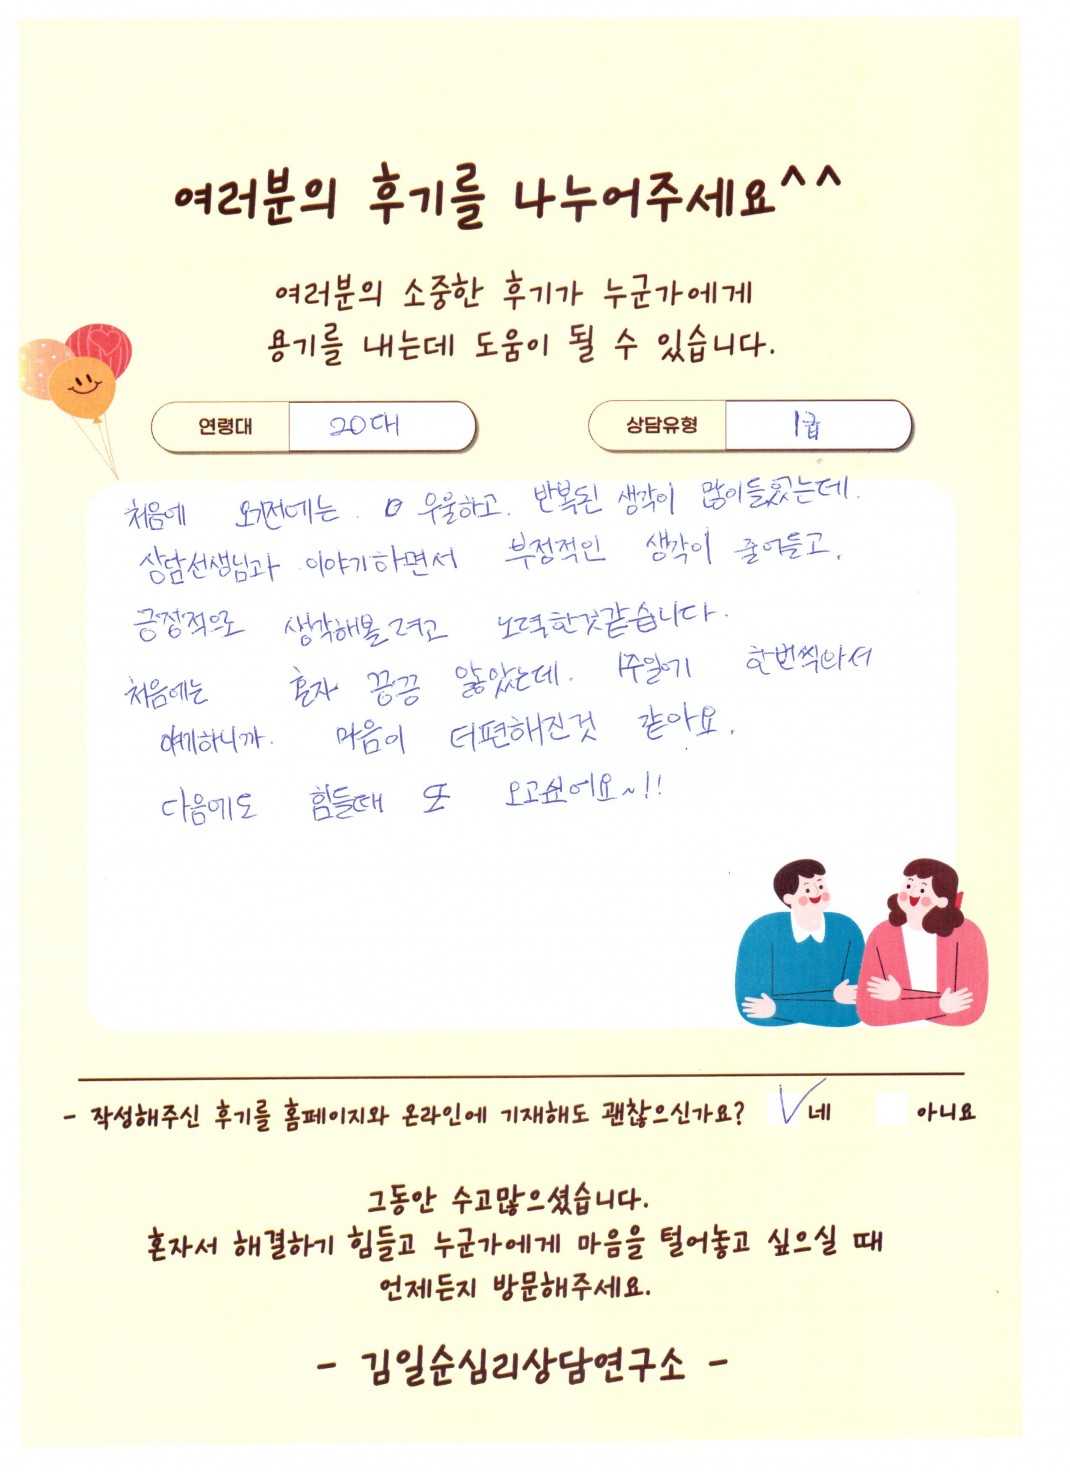 여러분의 후기를 나누어주세요^^
여러분의 소중한 후기가 누군가에게
용기를 내는데 도움이 될 수 있습니다.
연령대 20대 상담유형 1급
처음에 오기전에는. 우울하고. 반복된 생각이 많이들었는데.
상담선생님과 이야기하면서 부정적인 생각이 줄어들고.
긍정적으로 생각해볼려고 노력한것같습니다.
처음에는 혼자 끙끙 앓았는데. 1주일에 한번씩와서
얘기하니까. 마음이 더편해진것 같아요.
다음에도 힘들때 또 오고싶어요~!!
- 작성해주신 후기를 홈페이지와 온라인에 기재해도 괜찮으신가요? ✓네 아니요
그동안 수고많으셨습니다.
혼자서 해결하기 힘들고 누군가에게 마음을 털어놓고 싶으실 때
언제든지 방문해주세요.
- 김일순심리상담연구소 -